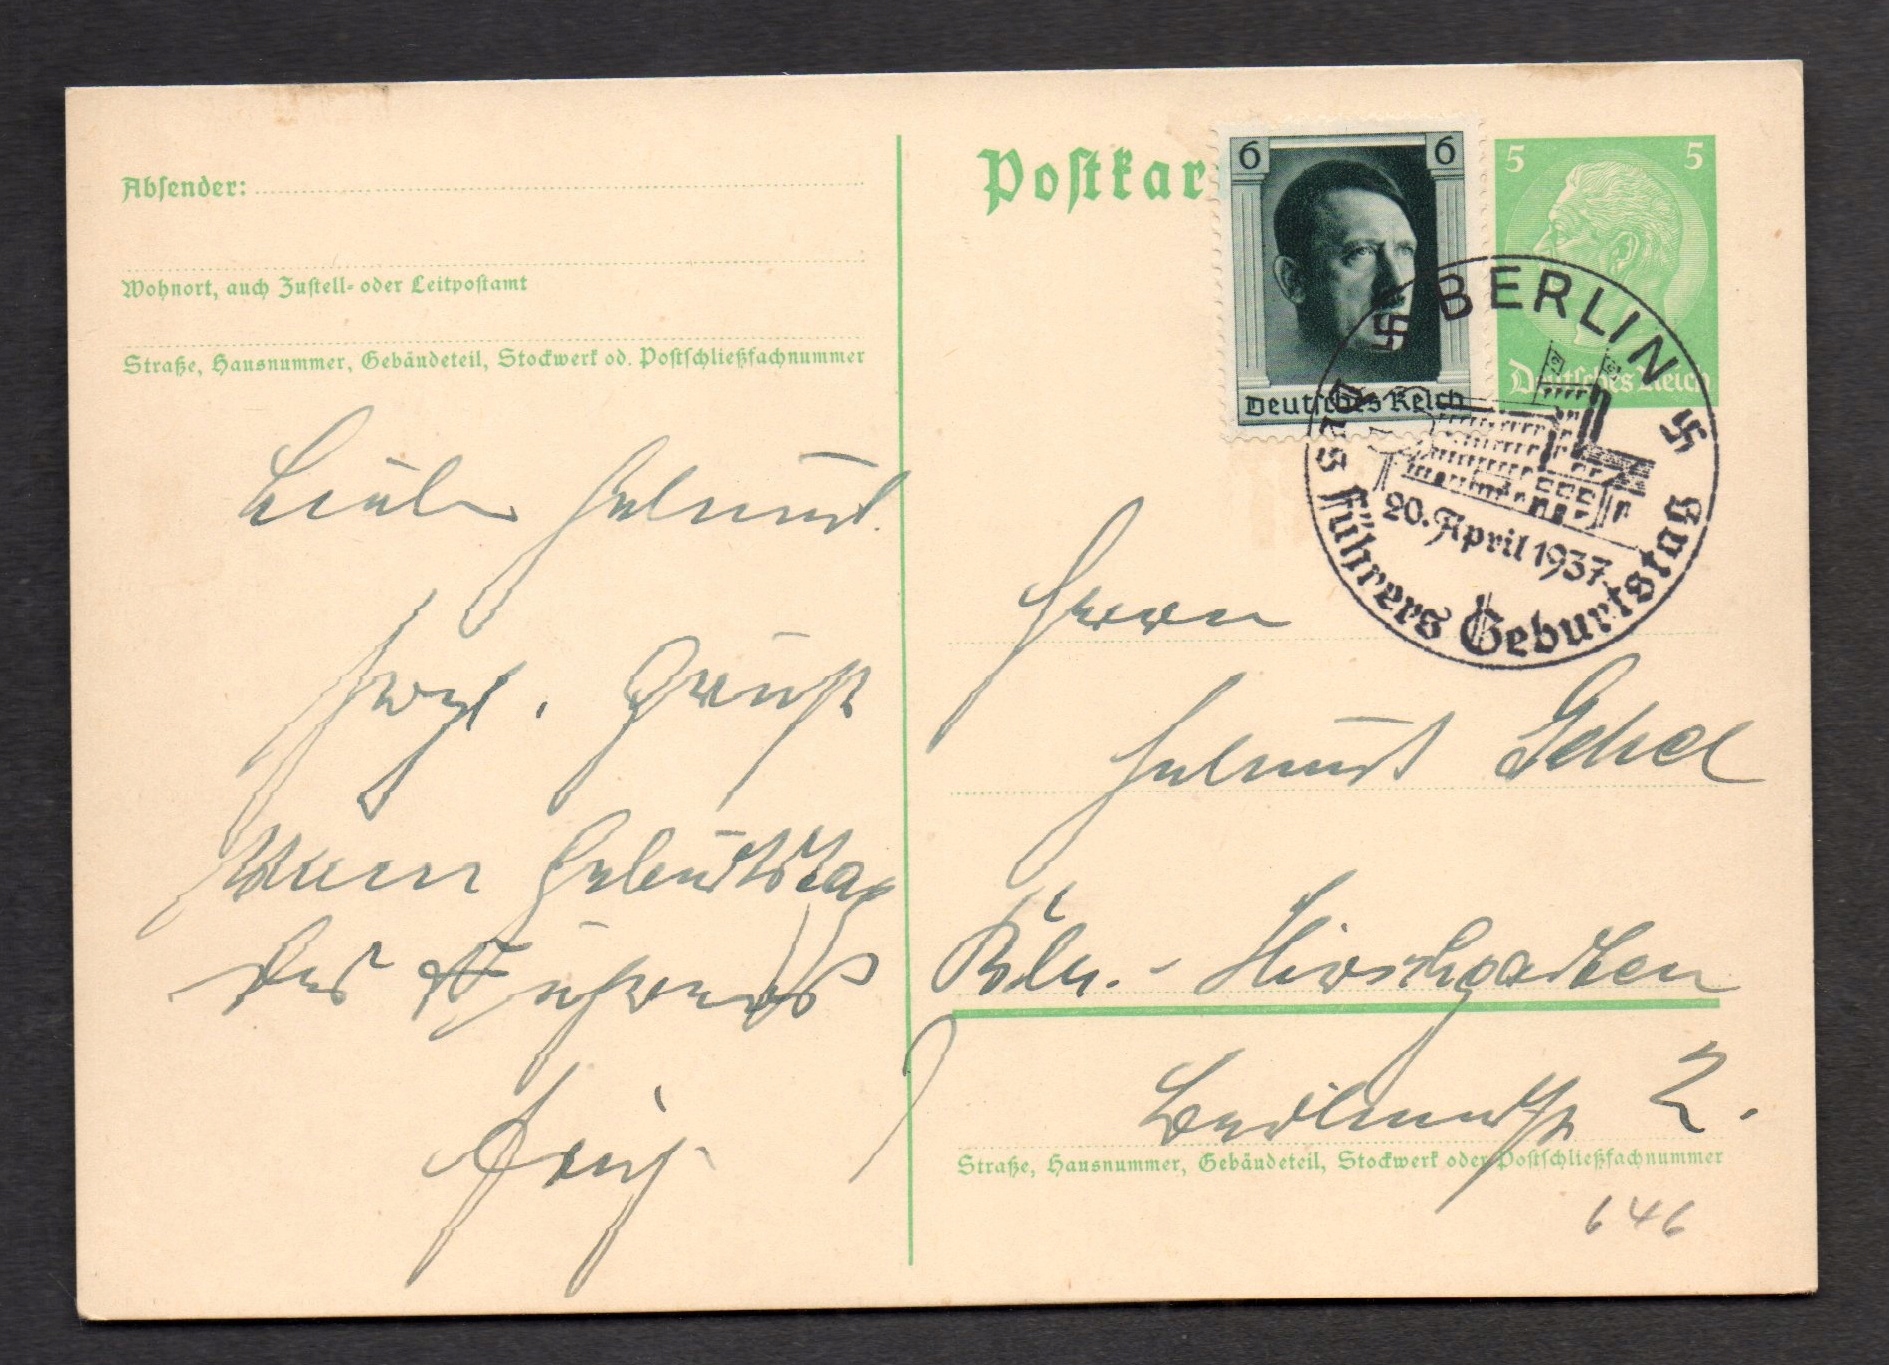 Absender:
Wohnort, auch Zustell- oder Leitpostamt
Straße, Hausnummer, Gebäudeteil, Stockwerk od. Postschließfachnummer
Postkar
6 6
Deutsches Reich
5 5
Deutsches Reich
BERLIN
20. April 1937
Des Führers Geburtstag
Lieber Helmut.
Herzl. Gruß
Geburtstag
des Führers
Herrn
Helmut
Bln. - Hirschgarten
2.
Straße, Hausnummer, Gebäudeteil, Stockwerk oder Postschließfachnummer
646